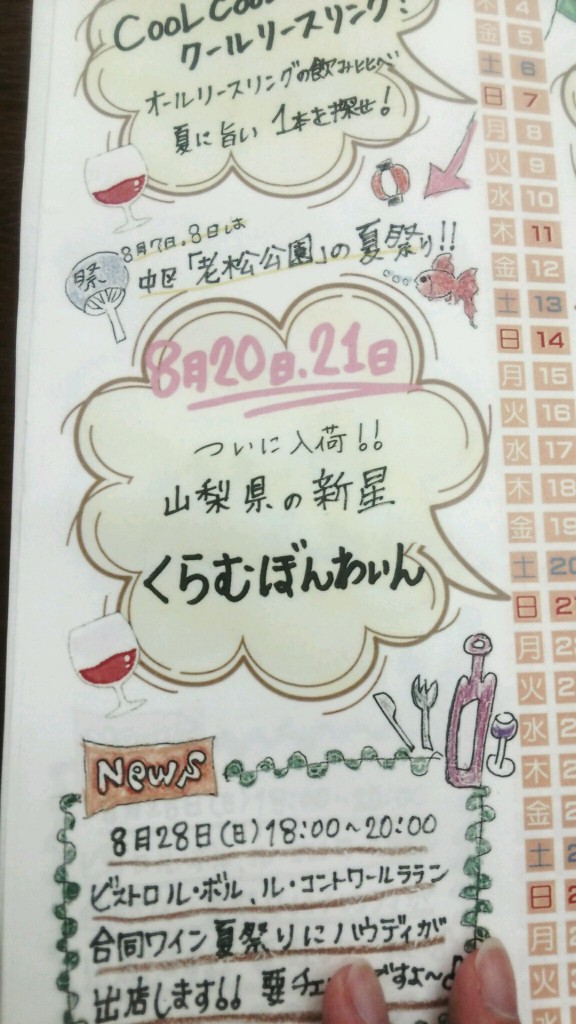 COOL COOL
クールリースリング!
オールリースリングの飲み比べ
夏に旨い 1本を探せ!
8月7日.8日は
中区「老松公園」の夏祭り!!
祭
8月20日.21日
ついに入荷!!
山梨県の新星
くらむぼんわいん
News
8月28日(日)18:00~20:00
ビストロ ル・ボル、ル・コントワールララン
合同ワイン夏祭りにハウディが
出店します!! 要チェ ですよ~♪
木 4
金 5
土 6
日 7
月 8
火 9
水 10
木 11
金 12
土 13
日 14
月 15
火 16
水 17
木 18
金 19
土 20
日 2
月 2
火 2
水 2
木 2
金 2
土 2
日 2
月 2
火
水